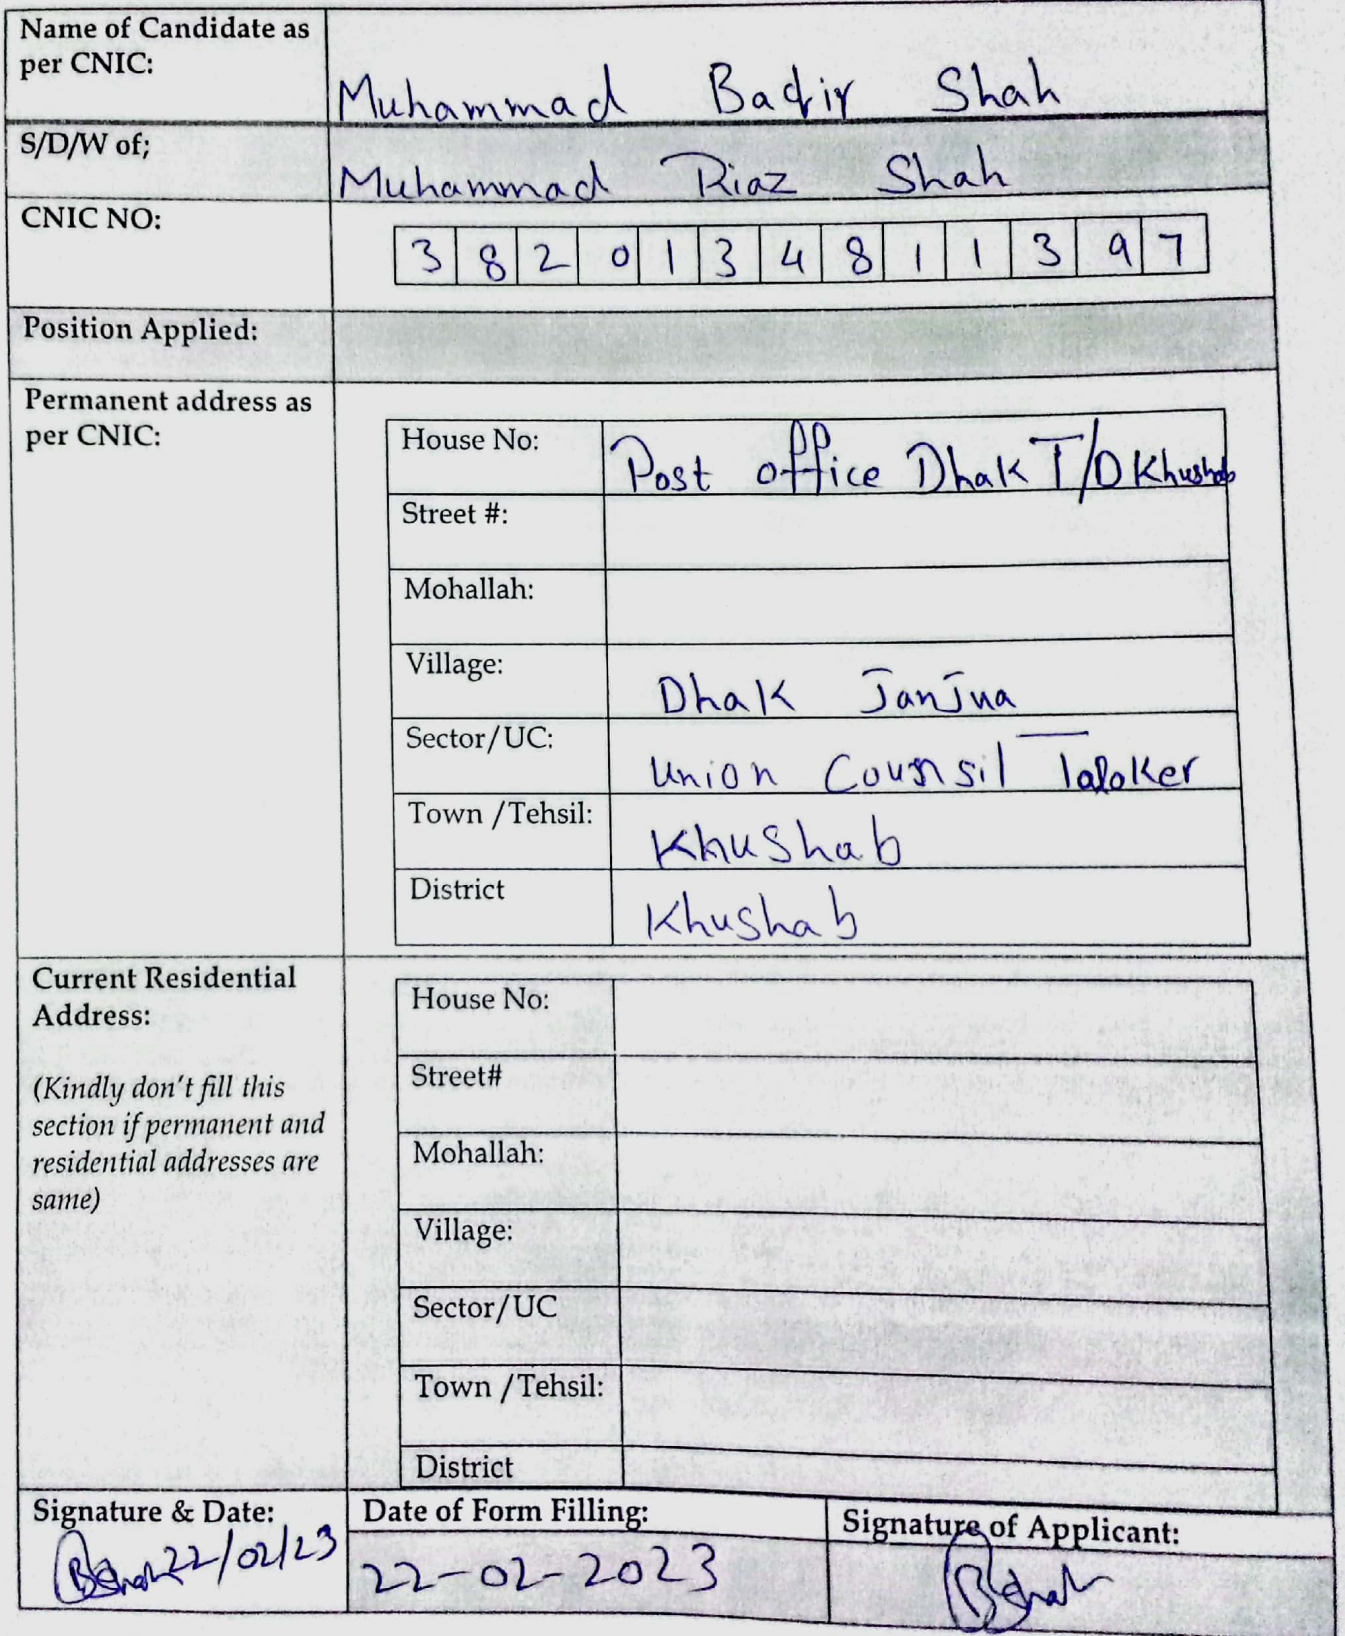 Name of Candidate as
per CNIC:
Muhammad Baqir Shah
S/D/W of;
Muhammad Riaz Shah
CNIC NO:
3 8 2 0 1 3 4 8 1 1 3 9 7
Position Applied:
Permanent address as
per CNIC:
House No:
Post office Dhak T/D Khushab
Street #:
Mohallah:
Village:
Dhak JanJua
Sector/UC:
Union Counsil Taloker
Town /Tehsil:
Khushab
District
Khushab
Current Residential
Address:
(Kindly don't fill this
section if permanent and
residential addresses are
same)
House No:
Street#
Mohallah:
Village:
Sector/UC
Town /Tehsil:
District
Signature & Date:
BShah 22/02/23
Date of Form Filling:
22-02-2023
Signature of Applicant:
BShah